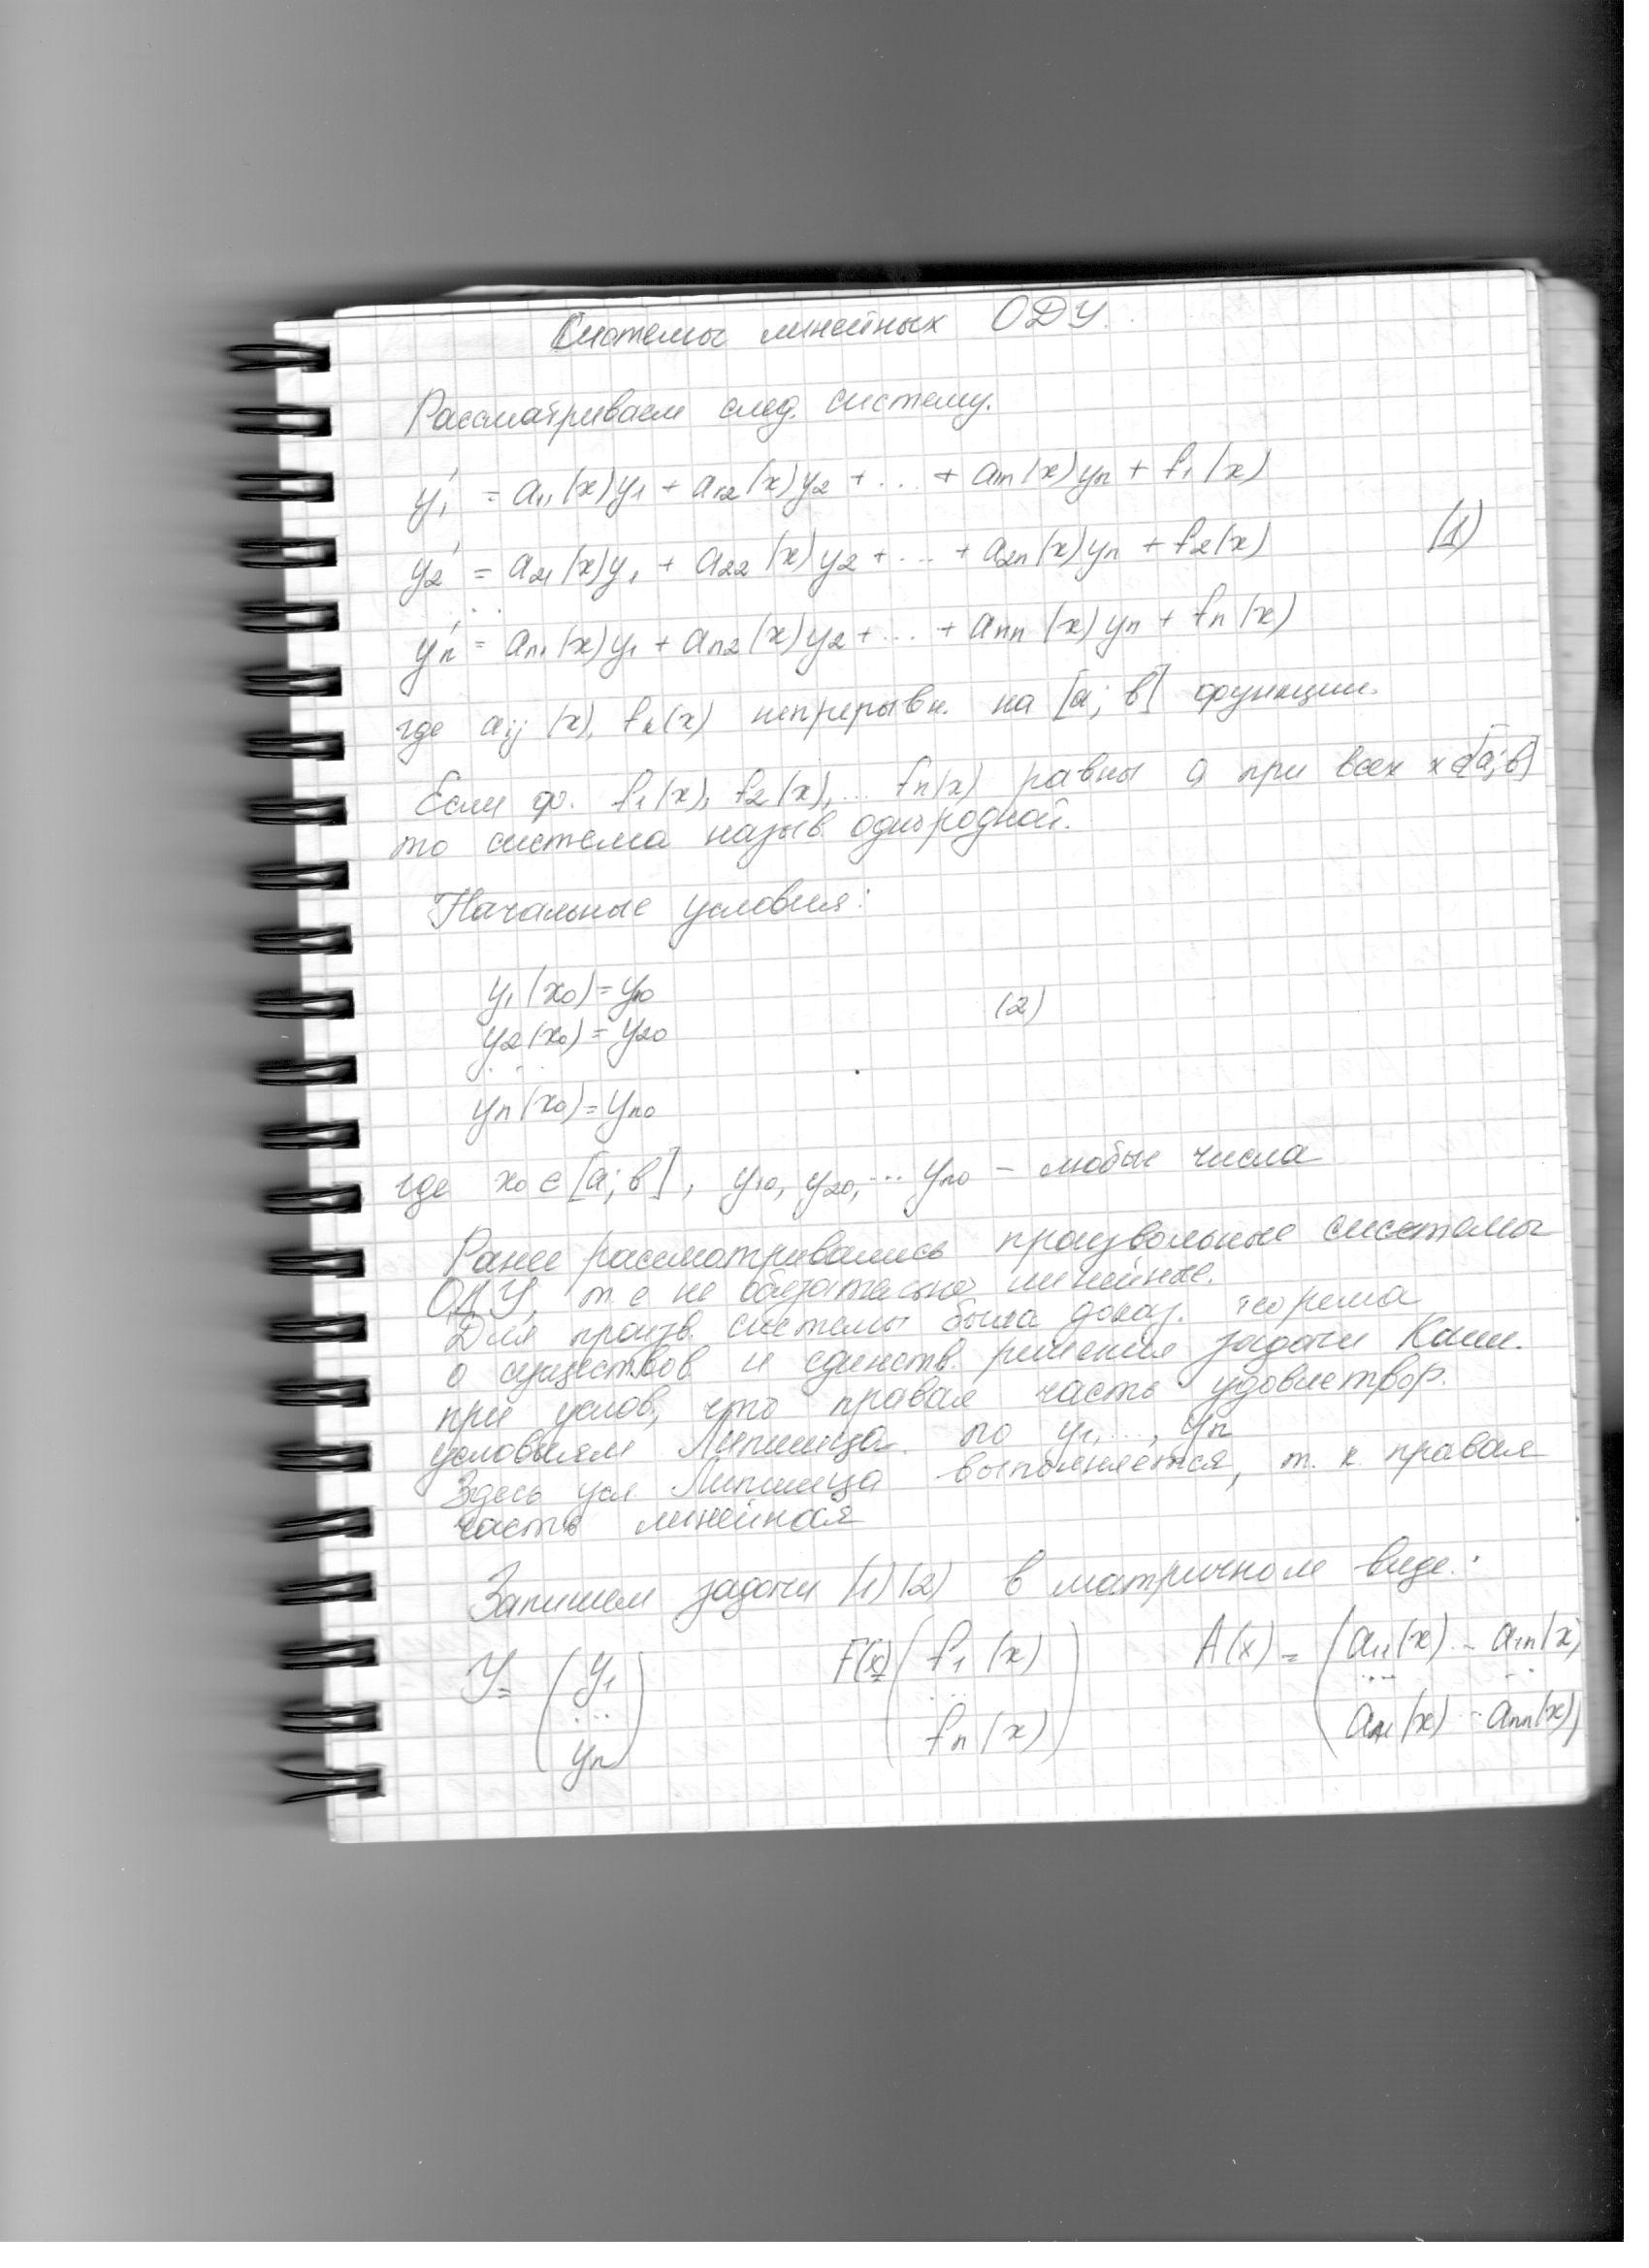 Системы линейных ОДУ.
Рассматриваем след. систему.
y₁' = a₁₁(x)y₁ + a₁₂(x)y₂ + ... + a₁ₙ(x)yₙ + f₁(x)
y₂' = a₂₁(x)y₁ + a₂₂(x)y₂ + ... + a₂ₙ(x)yₙ + f₂(x) (1)
...
yₙ' = aₙ₁(x)y₁ + aₙ₂(x)y₂ + ... + aₙₙ(x)yₙ + fₙ(x)
где aᵢⱼ(x), fₖ(x) непрерывн. на [a; в] функции.
Если ф. f₁(x), f₂(x), ... fₙ(x) равны 0 при всех x∈[a; в]
то система назыв. однородной.
Начальные условия:
y₁(x₀) = y₁₀
y₂(x₀) = y₂₀ (2)
...
yₙ(x₀) = yₙ₀
где x₀ ∈ [a; в], y₁₀, y₂₀, ... yₙ₀ – любые числа
Ранее рассматривались произвольные системы
ОДУ, т е не обязательно линейные.
Для произв. системы была доказ. теорема
о существов и единств. решения задачи Коши.
при услов, что правая часть удовлетвор.
условиям Липшица по y₁, ..., yₙ
Здесь усл. Липшица выполняется, т. к. правая
часть линейная
Запишем задачи (1) (2) в матричном виде:
Y = (y₁ ... yₙ) F(x) = (f₁(x) ... fₙ(x)) A(x) = (a₁₁(x) ... a₁ₙ(x)
... ...
aₙ₁(x) ... aₙₙ(x))